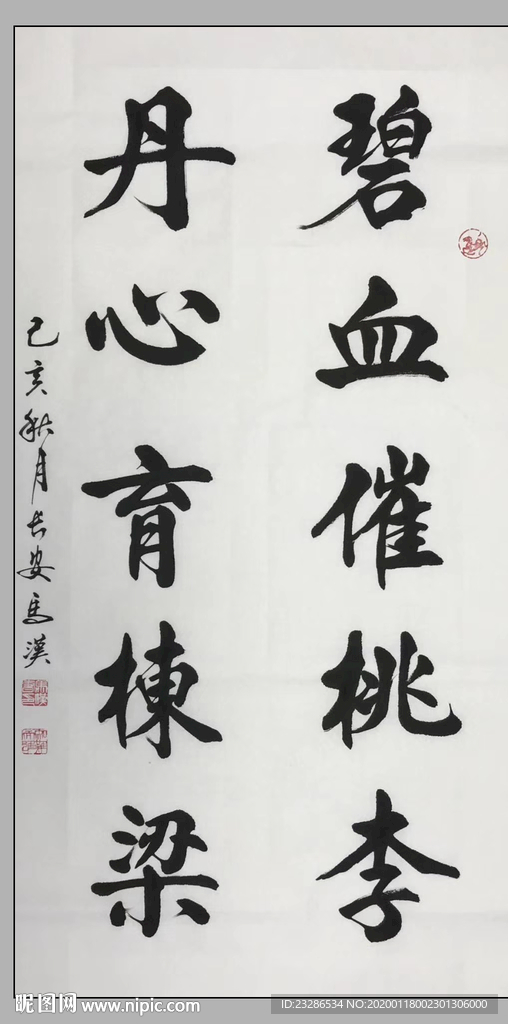 碧血催桃李
丹心育棟梁
己亥秋月长安馬漢
昵图网 www.nipic.com
ID:23286534 NO:20200118002301306000